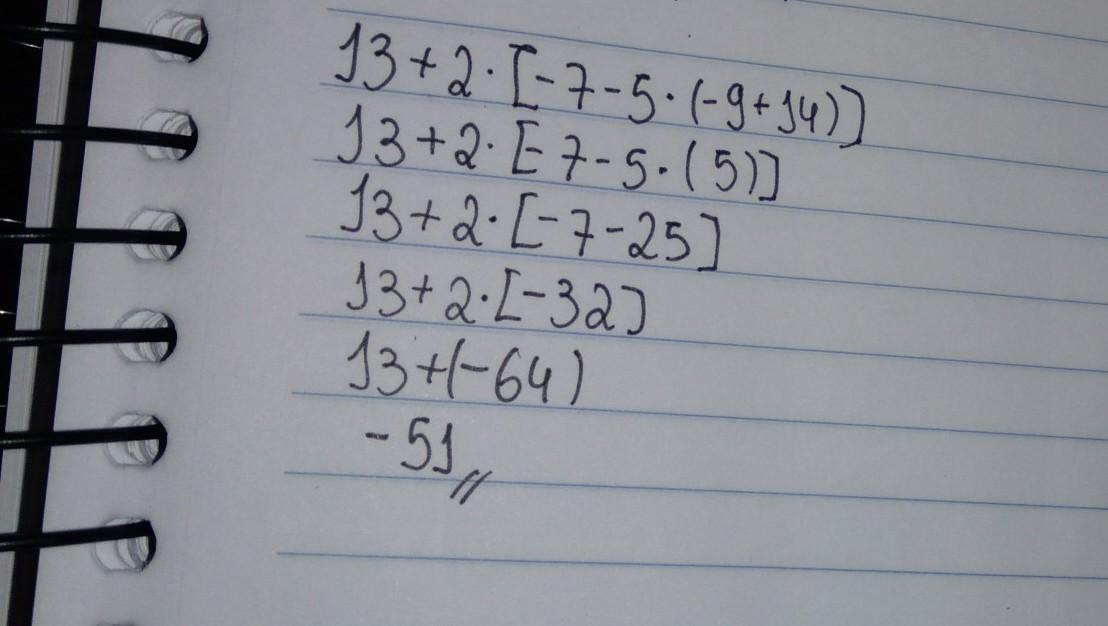 13+2·[-7-5·(-9+14)]
13+2·[-7-5·(5)]
13+2·[-7-25]
13+2·[-32]
13+(-64)
-51//